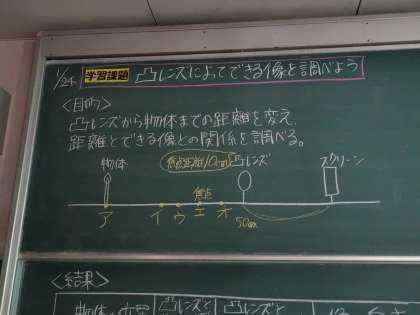 1/24 学習課題 凸レンズによってできる像を調べよう
<目的>
凸レンズから物体までの距離を変え、
距離とできる像との関係を調べる。
物体 焦点距離10cm 凸レンズ スクリーン
焦点
ア イ ウ エ オ
50cm
<結果>
凸レンズと 凸レンズと